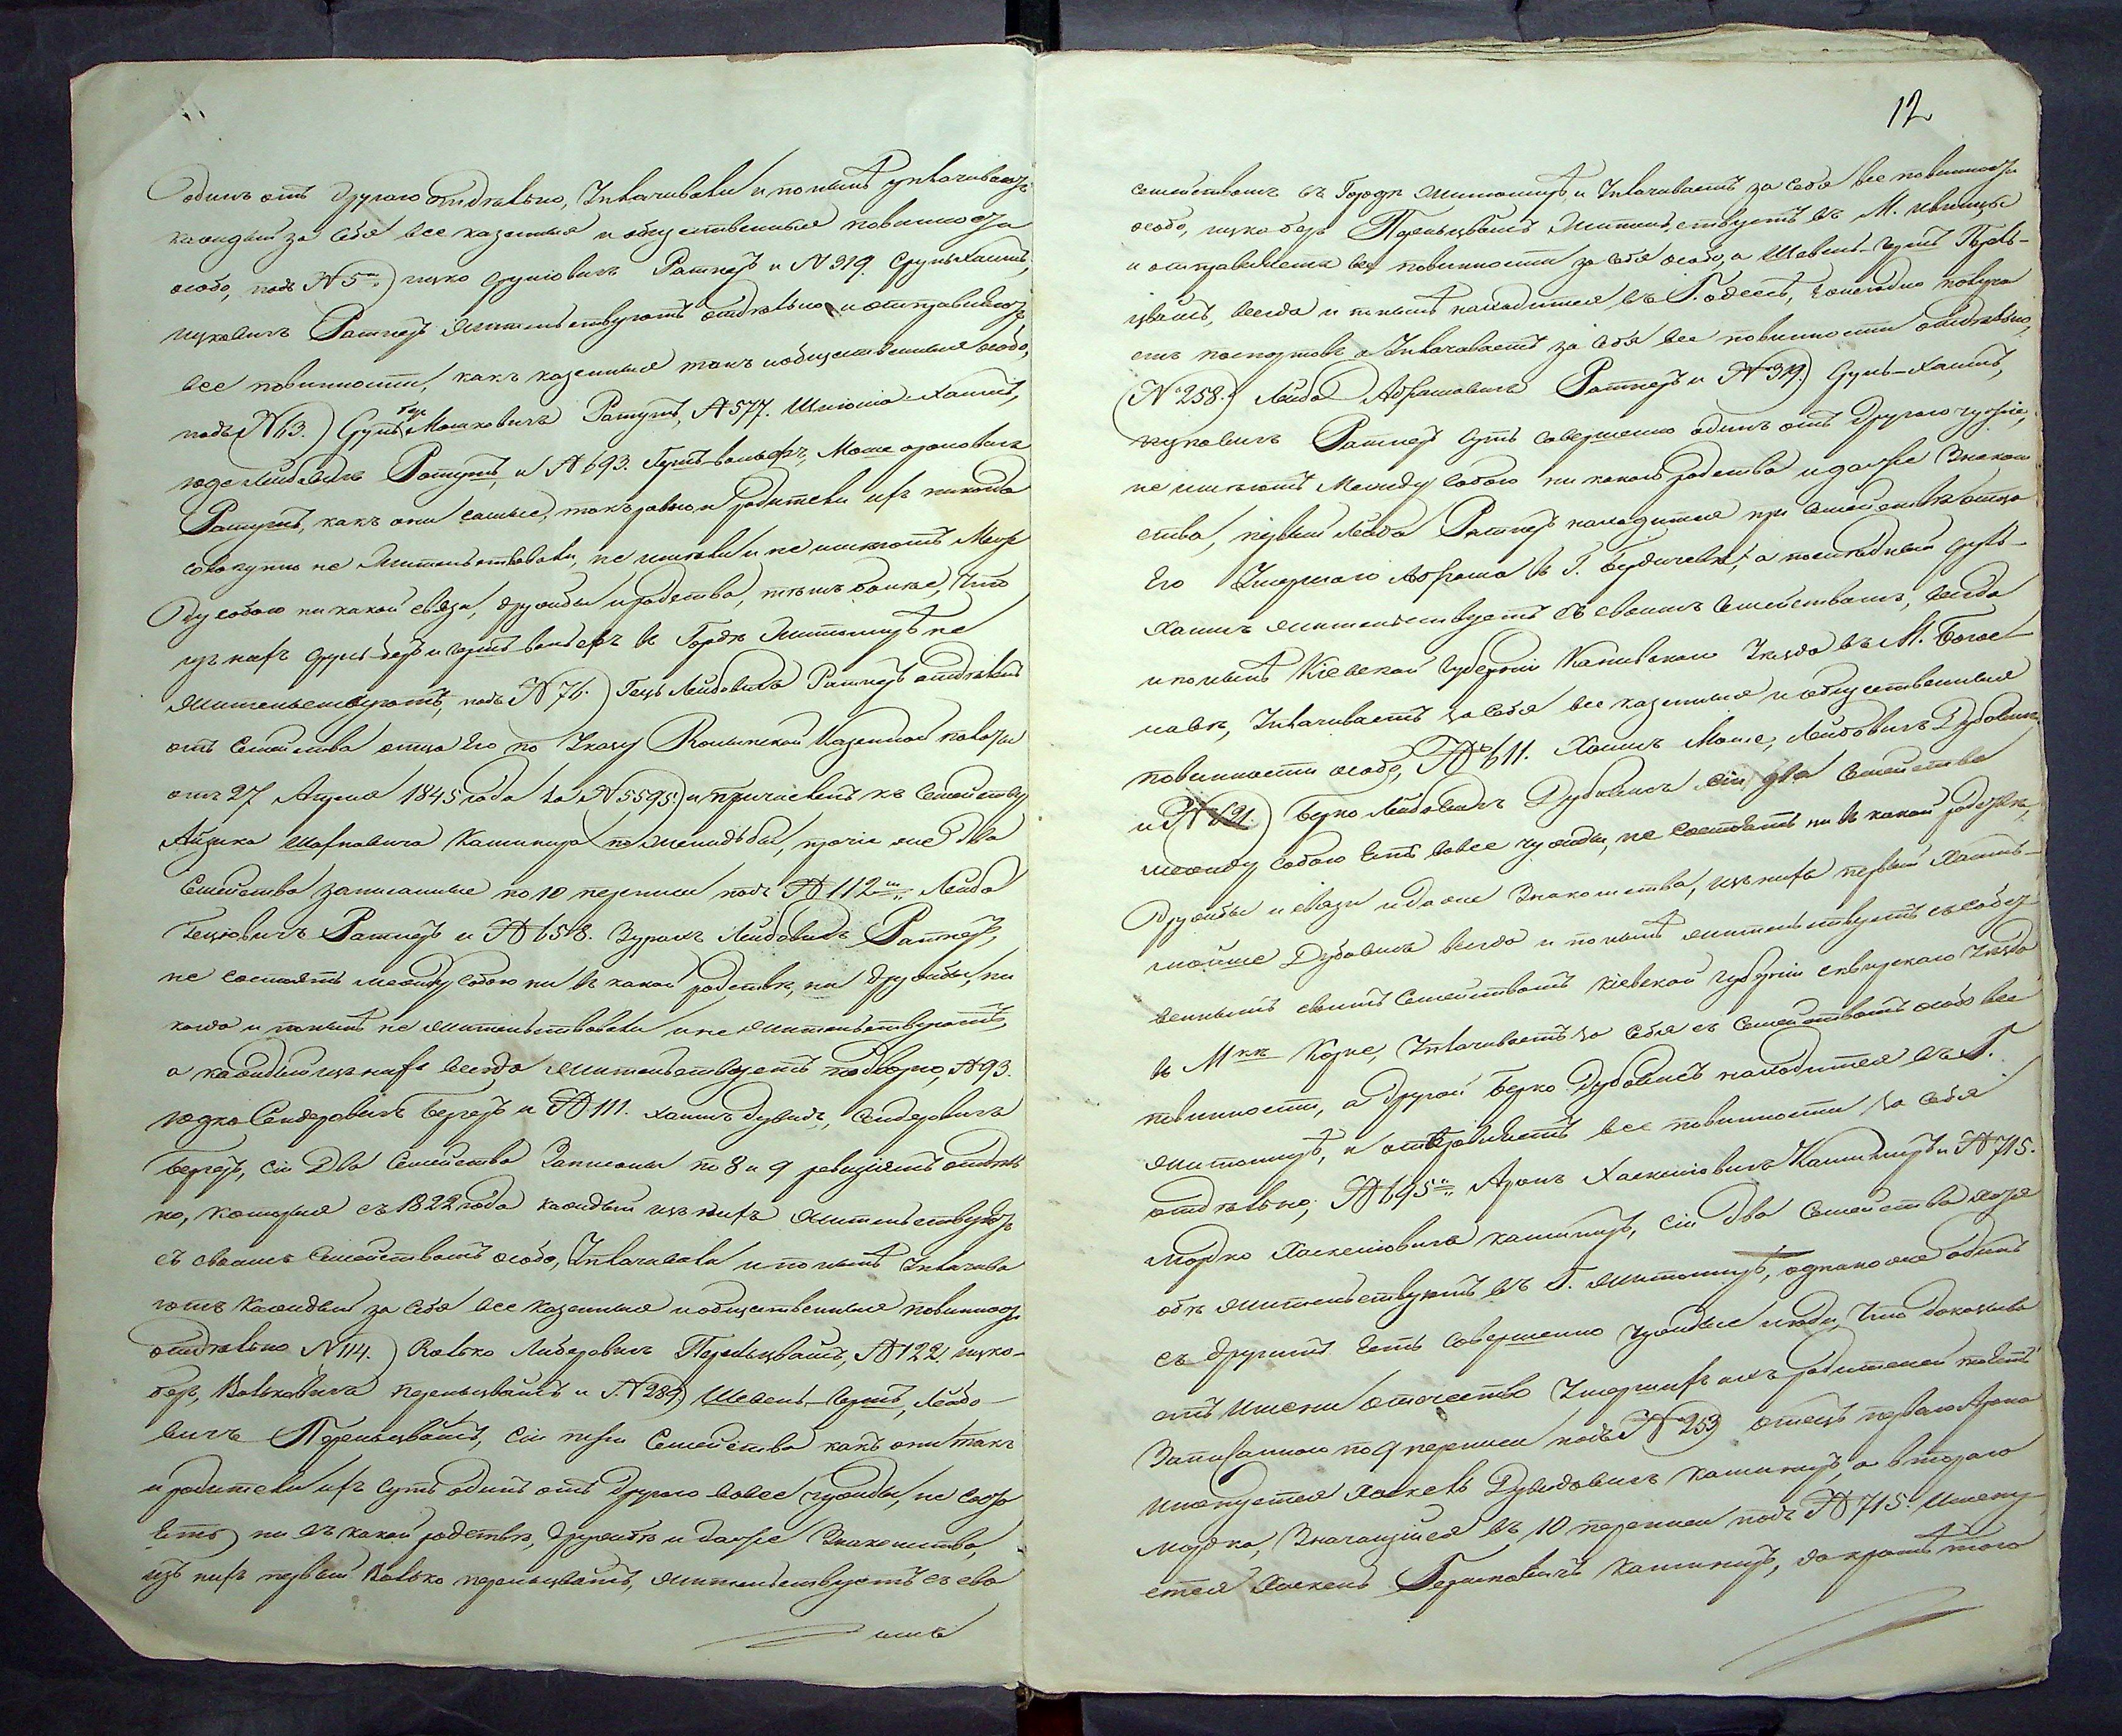 одинъ отъ другаго отдѣльно, уплачивали и понынѣ уплачиваютъ
каждый за себя все казенныя и общественныя повинности
особо, подъ № 5м) Ицко Сруловичъ Ратнеръ и № 319. Сруль Хаимъ,
Ицковичъ Ратнеръ жительствуютъ отдѣльно и отправляютъ
все повинности, какъ казенныя такъ и общественныя особо,
подъ № 63.) Сруль Бер Мошковичъ № 577. Шлиома-Хаимъ,
Юде Лейбовичъ и № 693. Гершъ-Вольфъ, Моше Ароновичъ
какъ они самые, такъ равно и родители ихъ никогда
совокупно не жительствовали, не имѣли и не имѣютъ меж
ду собою ни какой связи, дружбы и родства, тѣмъ болѣе, что
изъ нихъ Сруль-Беръ и Гершъ Вольфъ въ Городѣ Житомирѣ не
жительствуютъ, подъ № 76.) Гецъ Лейбовичъ Ратнеръ отдѣленъ
отъ Семейства отца его по Указу Волынской Казенной палаты
отъ 27 Апреля 1845 года за № 5595.) и причисленъ къ Семейству
Айзика Кашпира прочіе же два
Семейства записанные по 10 переписи подъ № 112м Лейба
Гецовичъ Ратнеръ и № 658. Лейбовичъ Ратнеръ,
не состоятъ между собою ни въ какой родствѣ, ни дружбы, ни
когда и понынѣ не жительствовали и не жительствуютъ,
а каждый изъ нихъ всегда жительствуетъ № 93.
Юдко Сендеровичъ Бергеръ и № 111. Хаимъ Дувидъ, Сендеровичъ
Бергеръ, сіи два Семейства Записаны по 8 и 9 ревизіямъ отдѣль
но, которыя съ 1822 года каждый изъ нихъ жительствуютъ
съ своимъ Семействомъ особо, уплачивали и понынѣ уплачива
ютъ каждый за себя все казенныя и общественныя повинности
отдѣльно № 114.) Волько Либеровичъ Перельцвайгъ, № 122. Ицко-
Беръ, Вольковичъ Перельцвайгъ и № 289) Шевель-Гершъ, Лейбо-
вичъ Перельцвайгъ, сіи три Семейства какъ они такъ
и родители ихъ суть одинъ отъ другаго вовсе чужды, не состо
ятъ ни въ какой родствѣ, дружбѣ и даже Знакомства,
изъ нихъ первый Волько Перельцвайгъ, жительствуетъ съ сво
имъ
12
семействомъ въ Городѣ Житомирѣ и уплачиваетъ за себя все повинности
особо, Ицко Беръ Перельцвайгъ жительствуетъ въ М. Ивницы
и отправляетъ все повинности за себя особо, а Шевель-Гершъ Перель-
цвайгъ, всегда и понынѣ находится въ Г. Одессѣ, ежегодно получа
етъ паспортовъ и уплачиваетъ за себя все повинности отдѣльно,
№ 258.) Лейба Абрамовичъ Ратнеръ и № 319.) Сруль-Хаимъ,
Ицковичъ Ратнеръ суть совершенно одинъ отъ другаго чужіе,
не имѣютъ между собою ни какого родства и даже Знаком
ства, первый Лейба Ратнеръ находится при Семействѣ отца
его умершаго Абрама въ Г. Бердичевѣ, а последный Сруль-
Хаимъ жительствуетъ съ своимъ Семействомъ, всегда
и понынѣ Кіевской Губерніи Каневскаго Уѣзда въ М. Богос
лавѣ, уплачиваетъ за себя все казенныя и общественныя
повинности особо, № 611. Хаимъ Моше, Лейбовичъ Дубовисъ,
и № 621.) Берко Лейбовичъ Дубовисъ сіи два Семейства
между собою есть вовсе чужды, не состоятъ ни въ какой родствѣ,
Дружбы и связи и даже Знакомства, изъ нихъ первый Хаимъ-
Мойше Дубовисъ всегда и понынѣ жительствуетъ съ собст
веннымъ своимъ Семействомъ Кіевской Губерніи Сквирскаго Уѣзда
въ Мкѣ Корне, уплачиваетъ за себя съ Семействомъ особо все
повинности, а другой Берко Дубовисъ находится въ Г.
Житомирѣ, и отправляетъ все повинности за себя
отдѣльно; № 695м Аронъ Хаскелиовичъ Кашпиръ и № 715.
Мордко Хаскелиовичъ Кашпиръ, сіи два Семейства хотя
обѣ жительствуютъ въ Г. Житомирѣ, однакоже одинъ
съ другимъ есть совершенно чуждые люди, что доказыва
етъ имени отчество умершихъ ихъ родителей
Записанного по 9 переписи подъ № 253) отецъ перваго Арона
именуется Хаскель Дувидовичъ Кашпиръ, а втораго
Мордка, Значащійся въ 10 переписи подъ № 715. имену
ется Хаскель Берковичъ Кашпиръ, да кромѣ того